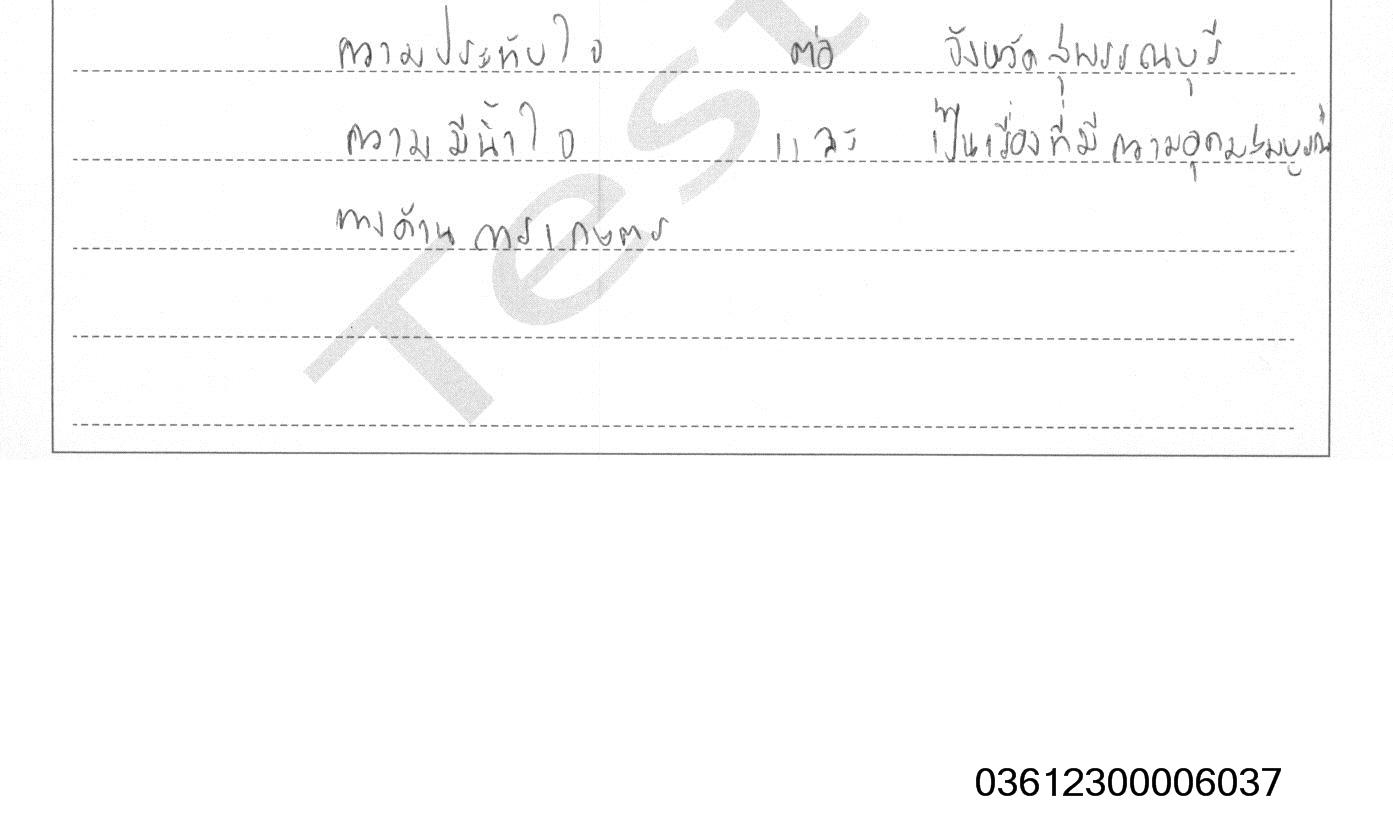 ความประทับใจ ต่อ จังหวัดสุพรรณบุรี
ความมีน้ำใจ และ เป็นเรื่องที่มี ความอุดมสมบูรณ์
ทางด้าน การเกษตร
Test
03612300006037